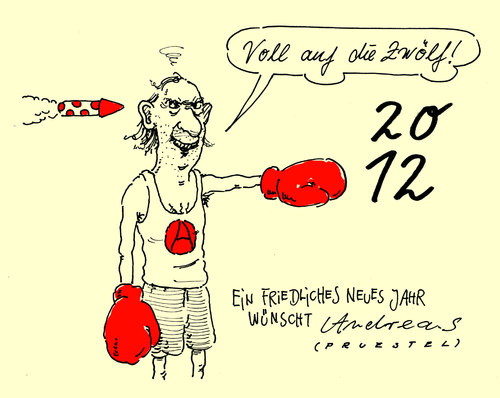 Voll auf die Zwölf!
20
12
A
EIN FRIEDLICHES NEUES JAHR
WÜNSCHT Andreas
(PRUESTEL)